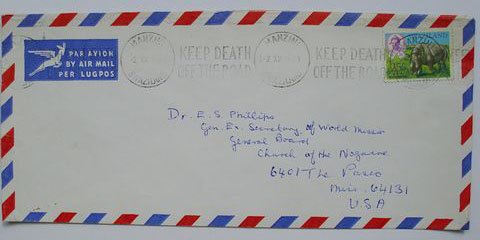 PAR AVION
BY AIR MAIL
PER LUGPOS
MANZINI
KEEP DEATH
OFF THE ROAD
MANZINI
KEEP DEATH
OFF THE ROAD
Dr. E. S. Phillips
Gen. Ex. Secretary of World Mission
General Board
Church of the Nazarene
6401 The Paseo
Miss. 64131
U.S.A